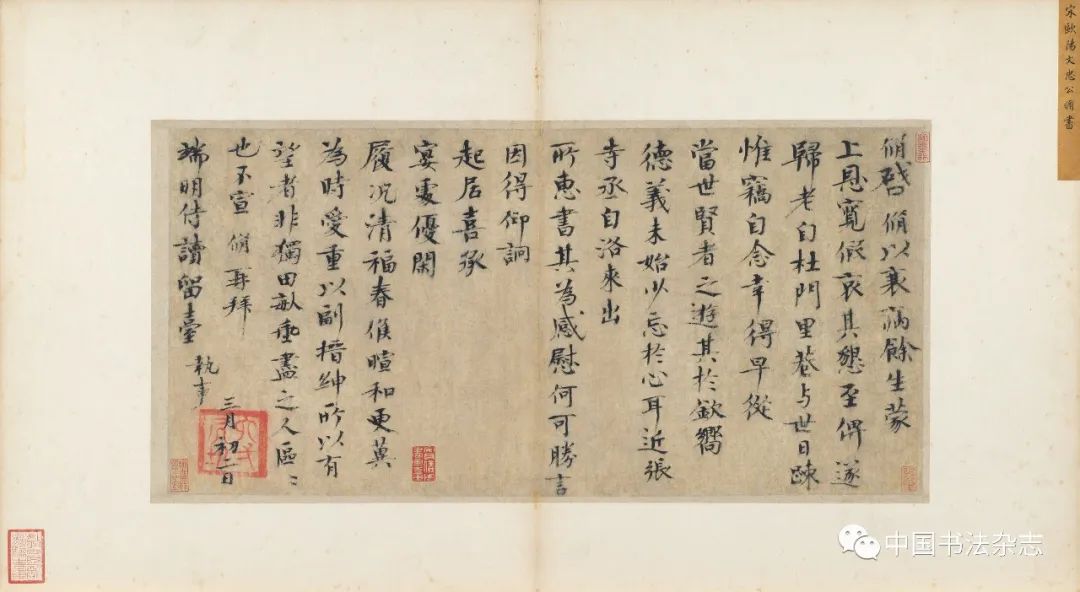 宋歐陽文忠公脩書
脩啓脩以衰病餘生蒙
上恩寬假哀其懇至俾遂
歸老自杜門里巷与世日踈
惟竊自念幸得早從
當世賢者之遊其於欽嚮
德義未始少忘於心耳近張
寺丞自洛來出
所惠書其為感慰何可勝言
因得仰詗
起居喜承
宴處優閑
履况清福春候暄和更冀
為時愛重以副搢紳所以有
望者非獨田畝垂盡之人區〻
也不宣脩再拜
端明侍讀留臺執事
三月初二日
中国书法杂志